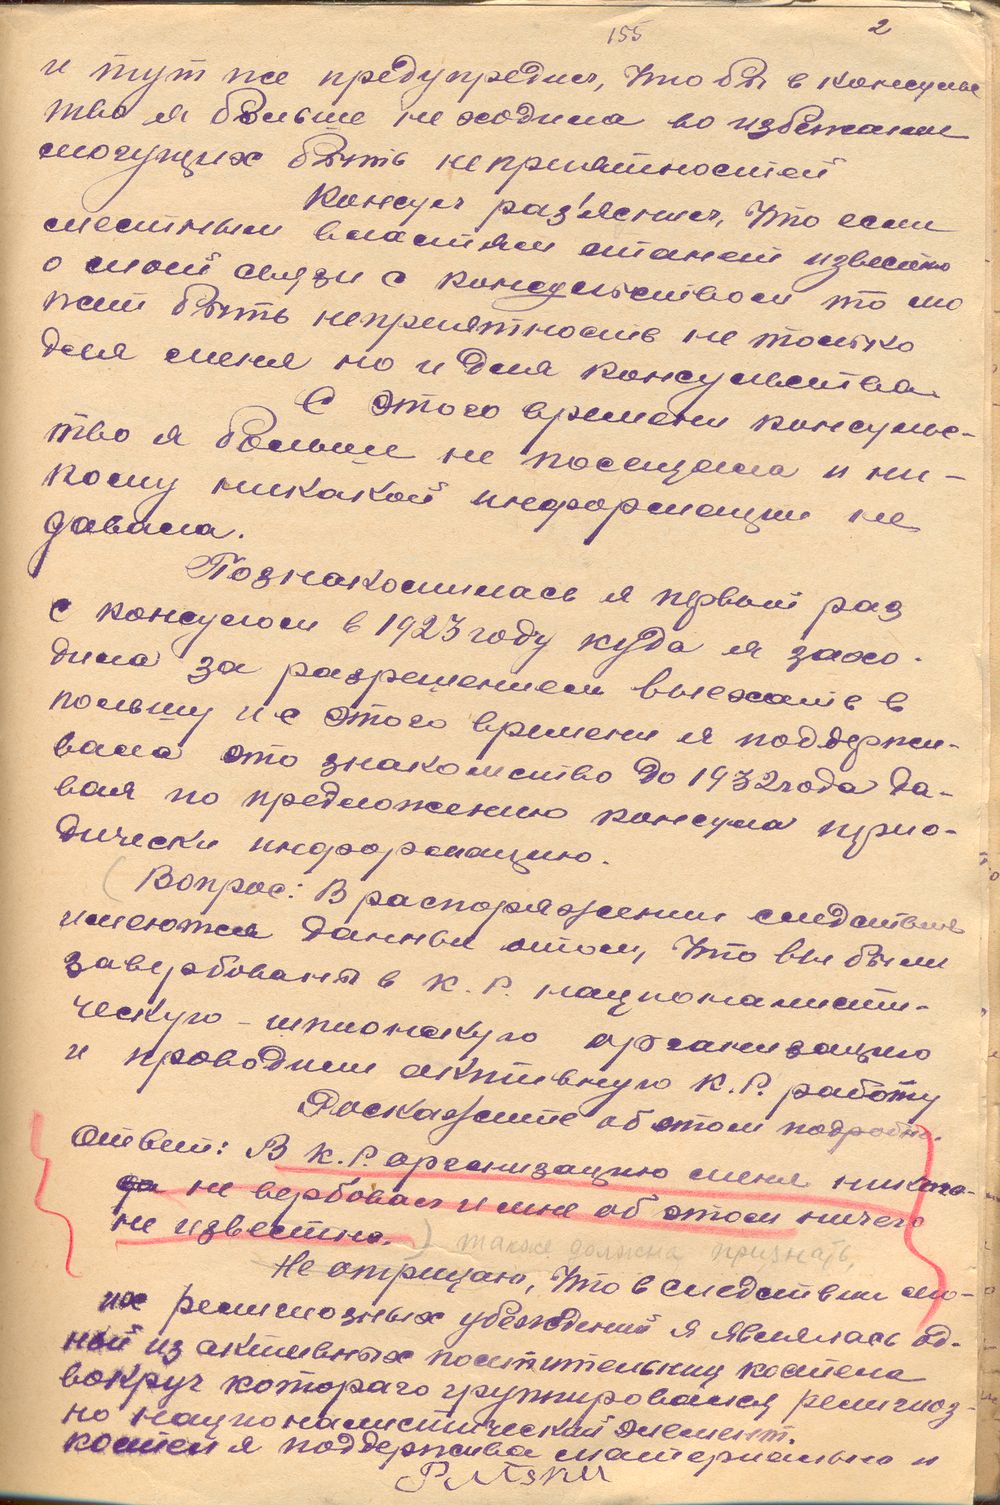 155
2
и тут же предупредил, что бы в консульс
тво я больше не ходила во избежании
могущих быть неприятностей
Консул раз'яснил, что если
местным властям станет известно
о моей связи с консульством то мо
жет быть неприятность не только
для меня но и для консульства.
С этого времени консульс-
тво я больше не посещала и ни-
кому никакой информации не
давала.
Познакомилась я первый раз
с консулом в 1923 году куда я захо-
дила за разрешением выехать в
польшу и с этого времени я поддержи-
вала это знакомство до 1932 года да-
вая по предложению консула перио-
дически информацию.
Вопрос: В распоряжении следствия
имеются данные отом, что вы были
завербованы в К.Р. националисти-
ческую-шпионскую организацию
и проводили активную К.Р. работу
Роскажите об этом подробно.
Ответ: В К.Р. организацию меня никог-
да не вербовал и мне об этом ничего
не известно.
также должна признать,
Не отрицаю, что в следствии мо-
их религиозных убеждений я являлась од-
ной из активных посетительниц костела
вокруг котораго группировался религиоз-
но националистический элемент.
костел я поддержива материально и